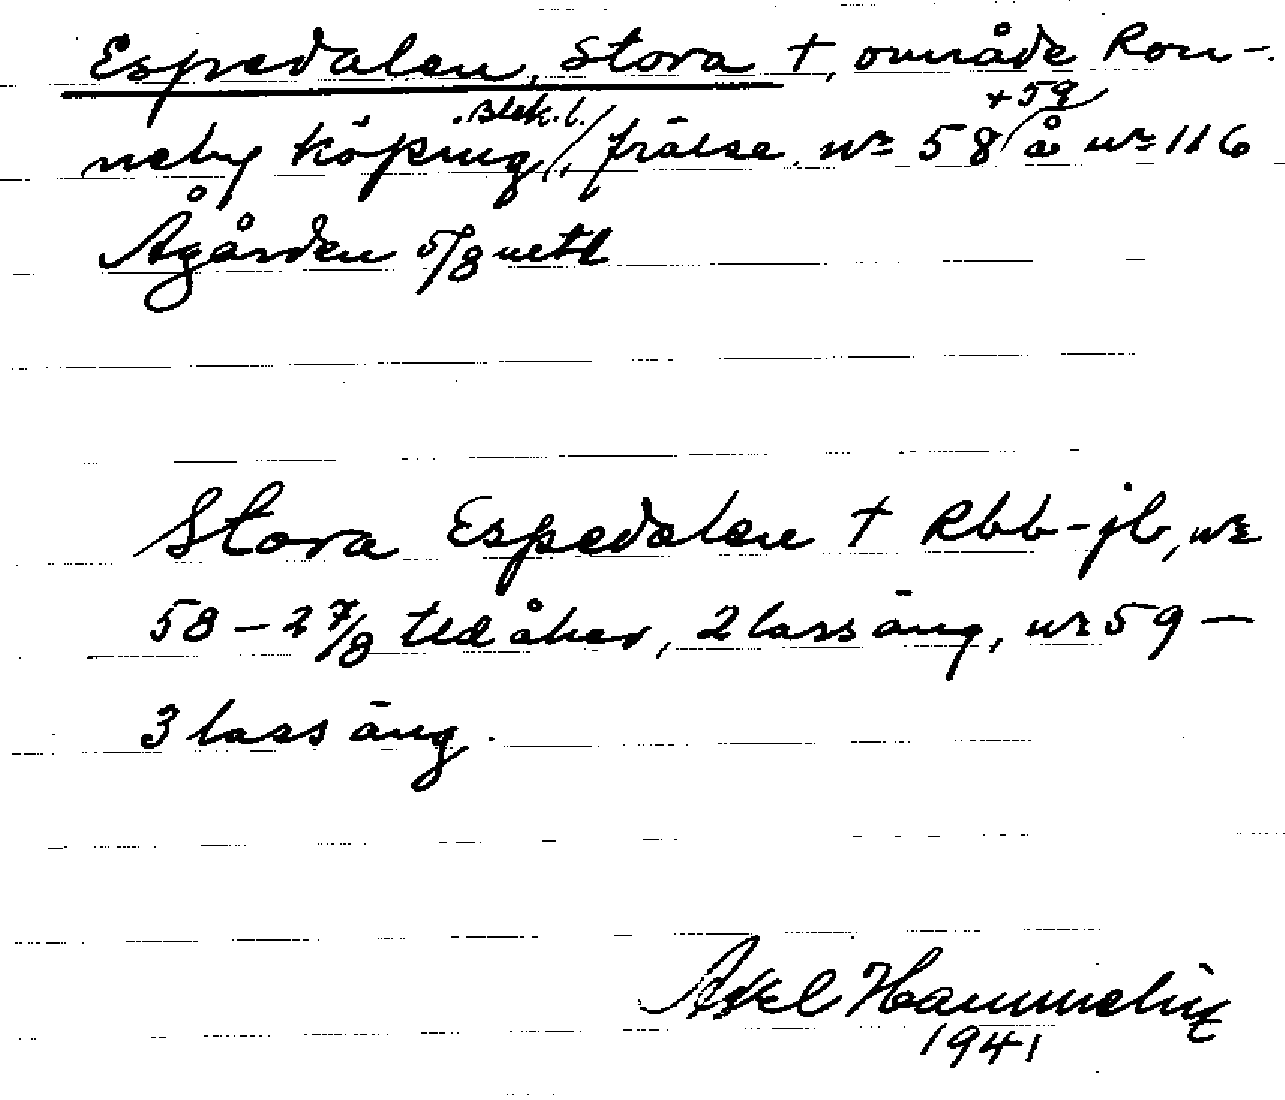 Espedalen, Stora †, område Ron-
neby köping, Blek. l., frälse nr 58 +59 å nr 116
Ågården 5/8 mtl
Stora Espedalen † Rbb-jb, nr
58 – 2 7/8 tld åker, 2 lass äng, nr 59 –
3 lass äng.
Axel Hammelin
1941